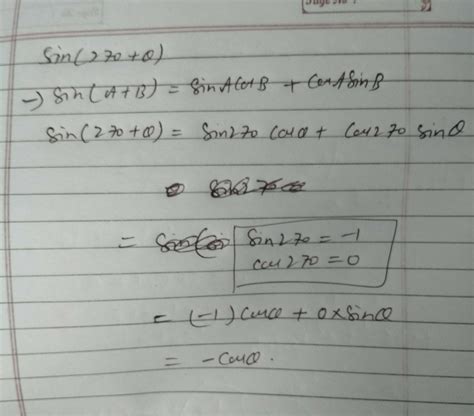 Sin(270+θ)
→ Sin(A+B) = SinA CosB + CosA SinB
Sin(270+θ) = Sin270 Cosθ + Cos270 Sinθ
= Sin270 = -1
cos270 = 0
= (-1) Cosθ + 0×Sinθ
= -Cosθ.